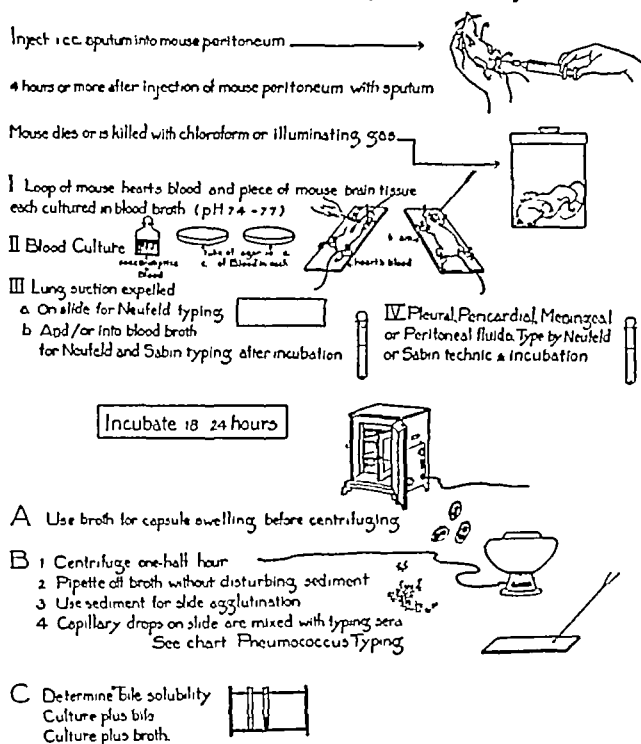 Inject 1 c.c. sputum into mouse peritoneum
4 hours or more after injection of mouse peritoneum with sputum
Mouse dies or is killed with chloroform or illuminating gas
I Loop of mouse hearts blood and piece of mouse brain tissue
each cultured in blood broth (pH 74-77)
II Blood Culture
Blood
c. of Blood in each
heart's blood
III Lung suction expelled
a On slide for Neufeld typing
b And/or into blood broth
for Neufeld and Sabin typing after incubation
IV Pleural, Pericardial, Meningeal
or Peritoneal fluids. Type by Neufeld
or Sabin technic & incubation
Incubate 18 24 hours
A Use broth for capsule swelling before centrifuging
B 1 Centrifuge one-half hour
2 Pipette off broth without disturbing sediment
3 Use sediment for slide agglutination
4 Capillary drops on slide are mixed with typing sera
See chart Pneumococcus Typing
C Determine bile solubility
Culture plus bile
Culture plus broth.